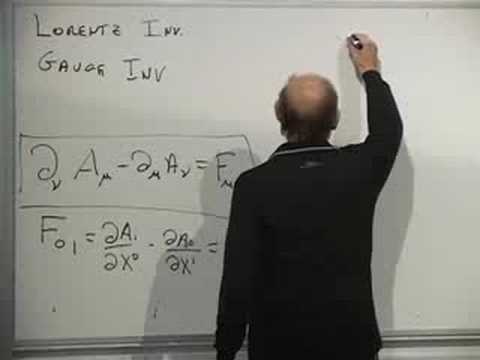 LORENTZ INV.
GAUGE INV
∂ν Aμ - ∂μ Aν = Fμ
F01 = ∂A1/∂X⁰ - ∂A0/∂X¹ =